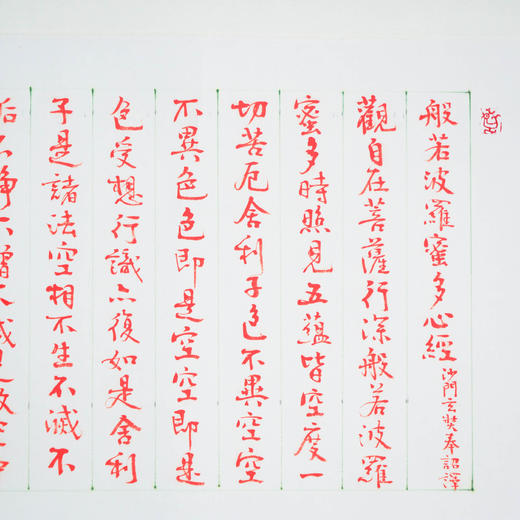 般若波羅蜜多心經 沙門玄奘奉詔譯
觀自在菩薩行深般若波羅
蜜多時照見五蘊皆空度一
切苦厄舍利子色不異空空
不異色色即是空空即是
色受想行識亦復如是舍利
子是諸法空相不生不滅不
垢不淨不增不減是故空中